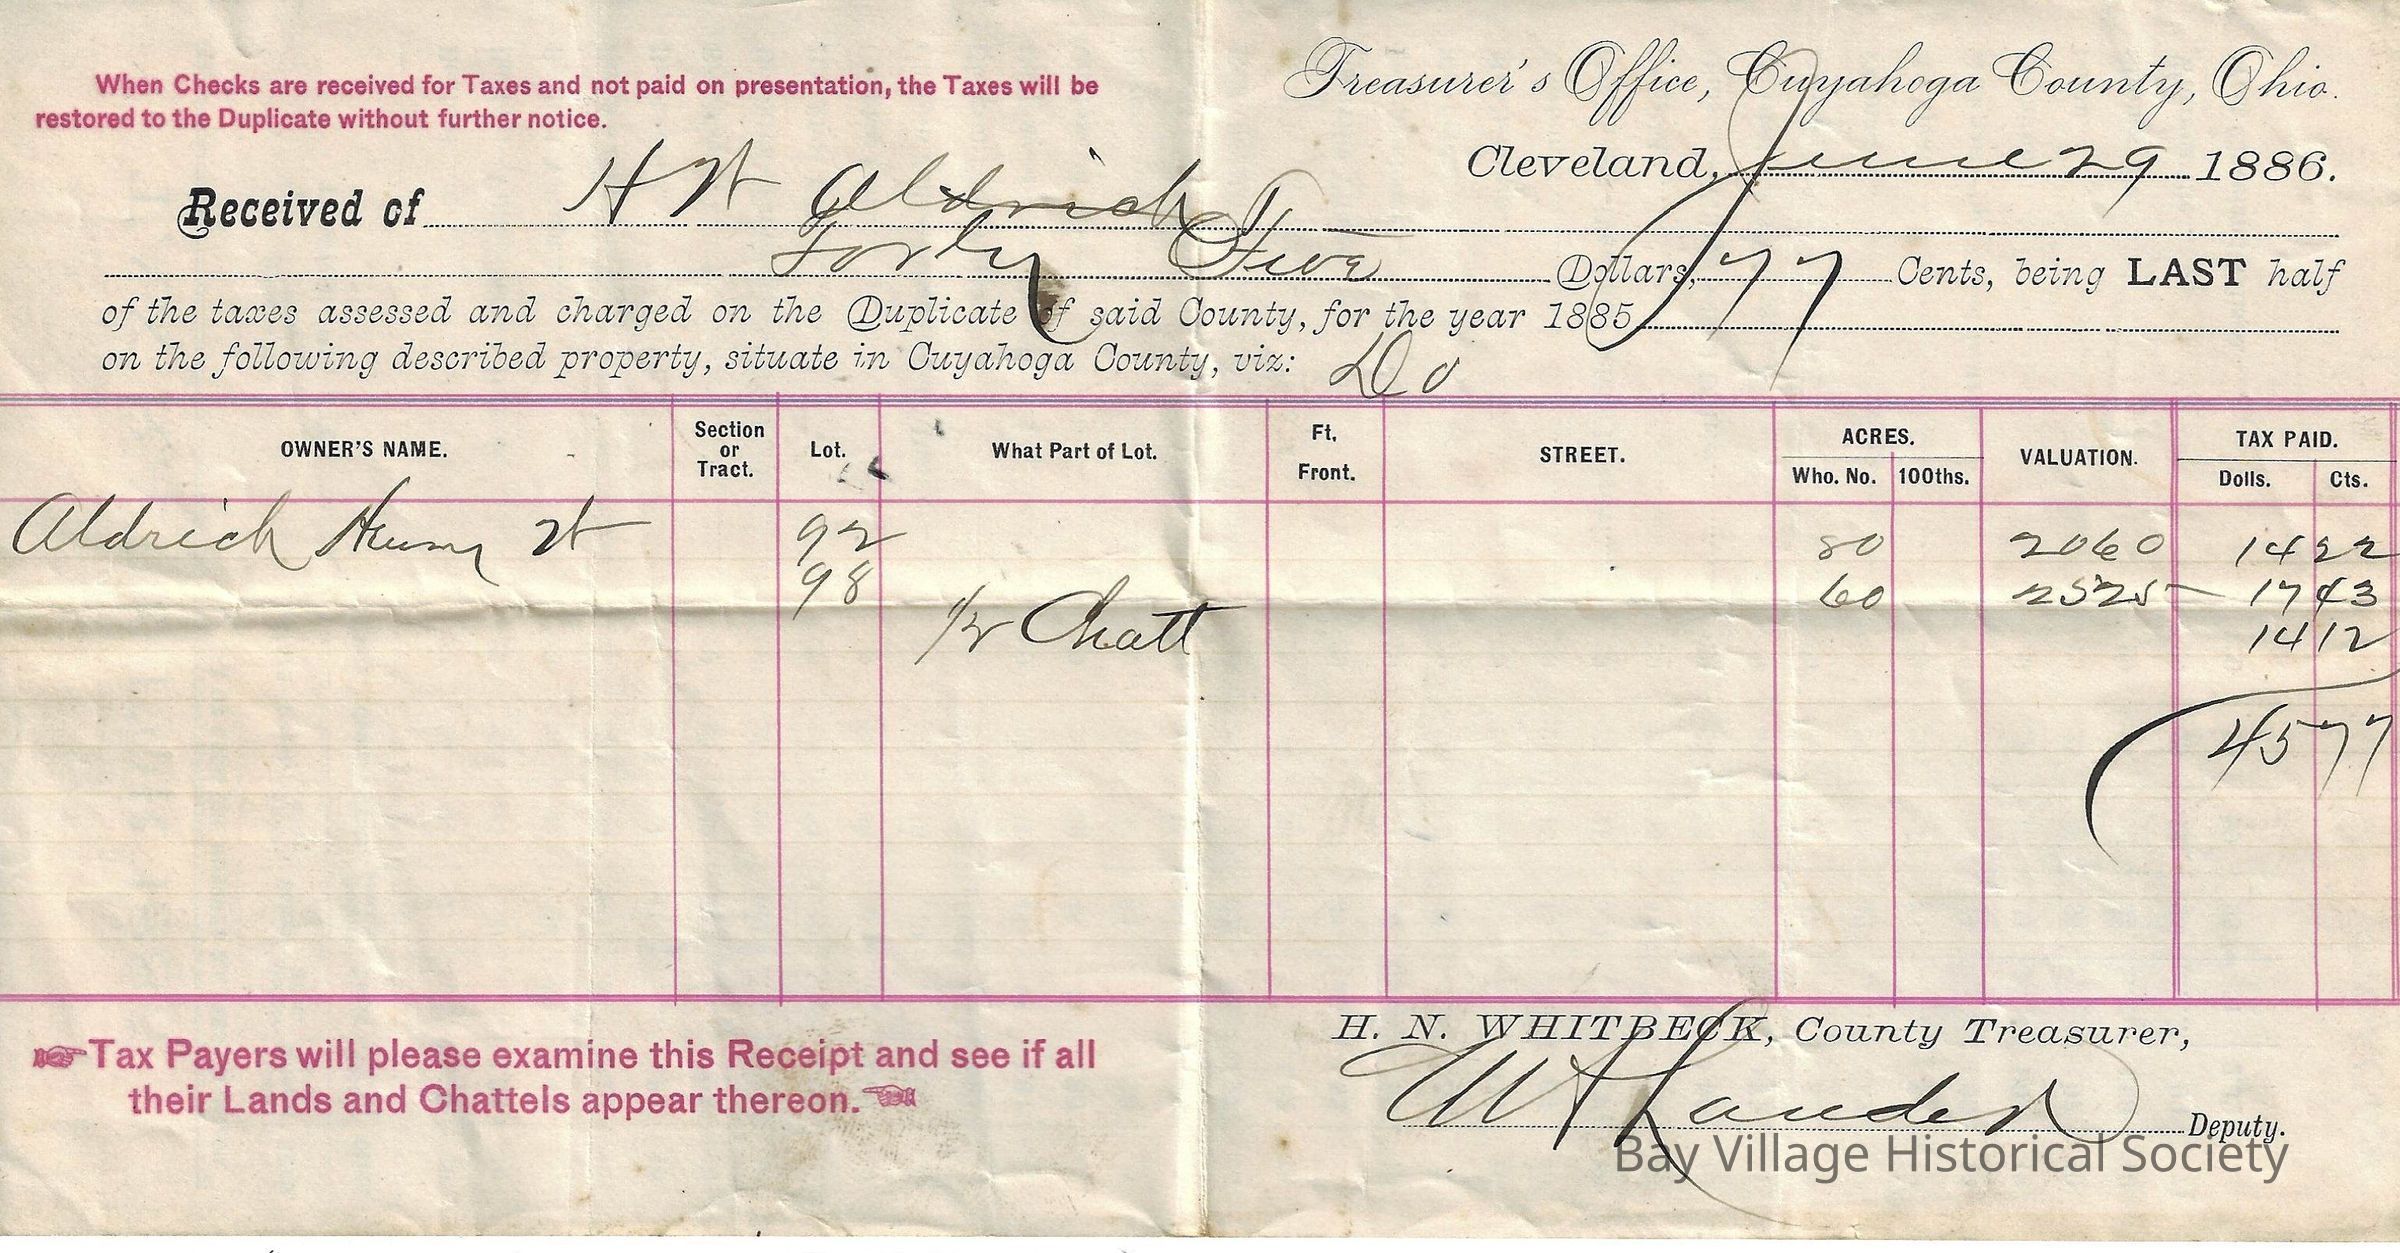 When Checks are received for Taxes and not paid on presentation, the Taxes will be
restored to the Duplicate without further notice.
Treasurer's Office, Cuyahoga County, Ohio.
Cleveland, June 29 1886.
Received of H W Aldrich
Forty Five Dollars, 77 Cents, being LAST half
of the taxes assessed and charged on the Duplicate of said County, for the year 1885
on the following described property, situate in Cuyahoga County, viz: Do
OWNER'S NAME. Section or Tract. Lot. What Part of Lot. Ft. Front. STREET. ACRES. Who. No. 100ths. VALUATION. TAX PAID. Dolls. Cts.
Aldrich Henry W 92 80 2060 14 22
98 60 2525 17 43
1/2 Chatt 14 12
45 77
Tax Payers will please examine this Receipt and see if all
their Lands and Chattels appear thereon.
H. N. WHITBECK, County Treasurer,
Deputy.
Bay Village Historical Society